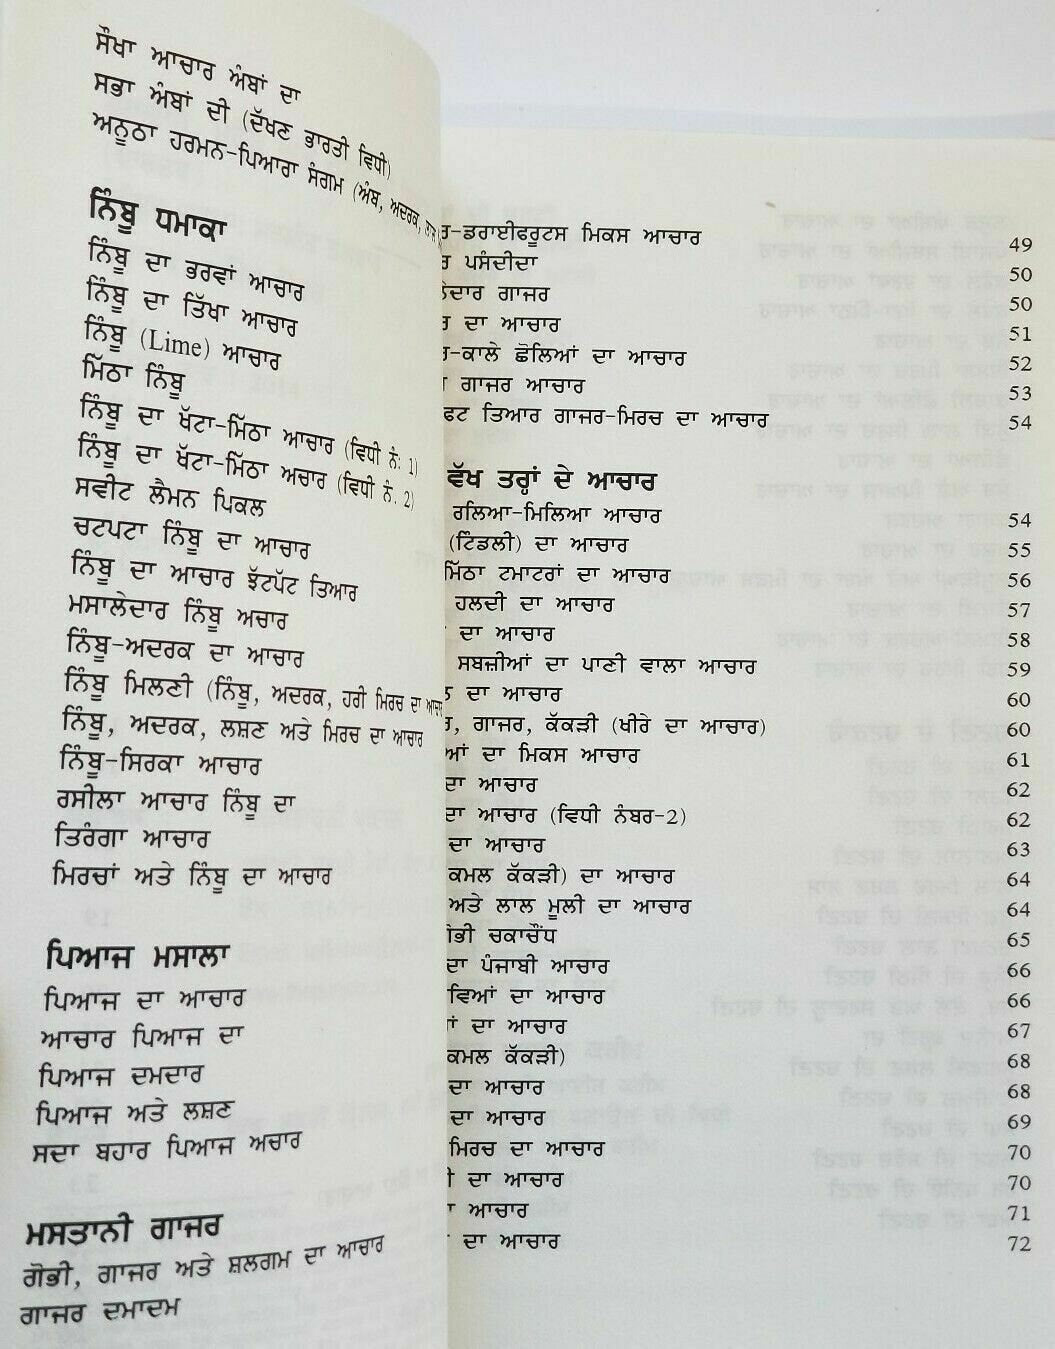 ਸੌਖਾ ਆਚਾਰ ਅੰਬਾਂ ਦਾ
ਸਭਾ ਅੰਬਾਂ ਦੀ (ਦੱਖਣ ਭਾਰਤੀ ਵਿਧੀ)
ਅਨੂਠਾ ਹਰਮਨ-ਪਿਆਰਾ ਸੰਗਮ (ਅੰਬ, ਅਦਰਕ,
ਨਿੰਬੂ ਧਮਾਕਾ
ਨਿੰਬੂ ਦਾ ਭਰਵਾਂ ਆਚਾਰ
ਨਿੰਬੂ ਦਾ ਤਿੱਖਾ ਆਚਾਰ
ਨਿੰਬੂ (Lime) ਆਚਾਰ
ਮਿੱਠਾ ਨਿੰਬੂ
ਨਿੰਬੂ ਦਾ ਖੱਟਾ-ਮਿੱਠਾ ਆਚਾਰ (ਵਿਧੀ ਨੰ: 1)
ਨਿੰਬੂ ਦਾ ਖੱਟਾ-ਮਿੱਠਾ ਅਚਾਰ (ਵਿਧੀ ਨੰ: 2)
ਸਵੀਟ ਲੈਮਨ ਪਿਕਲ
ਚਟਪਟਾ ਨਿੰਬੂ ਦਾ ਆਚਾਰ
ਨਿੰਬੂ ਦਾ ਆਚਾਰ ਝੱਟਪੱਟ ਤਿਆਰ
ਮਸਾਲੇਦਾਰ ਨਿੰਬੂ ਅਚਾਰ
ਨਿੰਬੂ-ਅਦਰਕ ਦਾ ਆਚਾਰ
ਨਿੰਬੂ ਮਿਲਣੀ (ਨਿੰਬੂ, ਅਦਰਕ, ਹਰੀ ਮਿਰਚ ਦਾ ਆਚਾਰ
ਨਿੰਬੂ, ਅਦਰਕ, ਲਸ਼ਣ ਅਤੇ ਮਿਰਚ ਦਾ ਆਚਾਰ
ਨਿੰਬੂ-ਸਿਰਕਾ ਆਚਾਰ
ਰਸੀਲਾ ਆਚਾਰ ਨਿੰਬੂ ਦਾ
ਤਿਰੰਗਾ ਆਚਾਰ
ਮਿਰਚਾਂ ਅਤੇ ਨਿੰਬੂ ਦਾ ਆਚਾਰ
ਪਿਆਜ ਮਸਾਲਾ
ਪਿਆਜ ਦਾ ਆਚਾਰ
ਆਚਾਰ ਪਿਆਜ ਦਾ
ਪਿਆਜ ਦਮਦਾਰ
ਪਿਆਜ ਅਤੇ ਲਸ਼ਣ
ਸਦਾ ਬਹਾਰ ਪਿਆਜ ਅਚਾਰ
ਮਸਤਾਨੀ ਗਾਜਰ
ਗੋਭੀ, ਗਾਜਰ ਅਤੇ ਸ਼ਲਗਮ ਦਾ ਆਚਾਰ
ਗਾਜਰ ਦਮਾਦਮ
ਰ-ਡਰਾਈਫਰੂਟਸ ਮਿਕਸ ਆਚਾਰ 49
ਰ ਪਸੰਦੀਦਾ 50
ਲੇਦਾਰ ਗਾਜਰ 50
ਰ ਦਾ ਆਚਾਰ 51
ਰ-ਕਾਲੇ ਛੋਲਿਆਂ ਦਾ ਆਚਾਰ 52
ਗਾਜਰ ਆਚਾਰ 53
ਫਟ ਤਿਆਰ ਗਾਜਰ-ਮਿਰਚ ਦਾ ਆਚਾਰ 54
ਵੱਖ ਤਰ੍ਹਾਂ ਦੇ ਆਚਾਰ
ਰਲਿਆ-ਮਿਲਿਆ ਆਚਾਰ 54
(ਟਿੰਡਲੀ) ਦਾ ਆਚਾਰ 55
ਮਿੱਠਾ ਟਮਾਟਰਾਂ ਦਾ ਆਚਾਰ 56
ਹਲਦੀ ਦਾ ਆਚਾਰ 57
ਦਾ ਆਚਾਰ 58
ਸਬਜ਼ੀਆਂ ਦਾ ਪਾਣੀ ਵਾਲਾ ਆਚਾਰ 59
ਦਾ ਆਚਾਰ 60
ਰ, ਗਾਜਰ, ਕੱਕੜੀ (ਖੀਰੇ ਦਾ ਆਚਾਰ) 60
ਆਂ ਦਾ ਮਿਕਸ ਆਚਾਰ 61
ਦਾ ਆਚਾਰ 62
ਦਾ ਆਚਾਰ (ਵਿਧੀ ਨੰਬਰ-2) 62
ਦਾ ਆਚਾਰ 63
ਕਮਲ ਕੱਕੜੀ) ਦਾ ਆਚਾਰ 64
ਅਤੇ ਲਾਲ ਮੂਲੀ ਦਾ ਆਚਾਰ 64
ਗੋਭੀ ਚਕਾਚੌਂਧ 65
ਦਾ ਪੰਜਾਬੀ ਆਚਾਰ 66
ਵਿਆਂ ਦਾ ਆਚਾਰ 66
ਦਾ ਆਚਾਰ 67
ਕਮਲ ਕੱਕੜੀ) 68
ਦਾ ਆਚਾਰ 68
ਦਾ ਆਚਾਰ 69
ਮਿਰਚ ਦਾ ਆਚਾਰ 70
ਦਾ ਆਚਾਰ 70
ਆਚਾਰ 71
ਦਾ ਆਚਾਰ 72